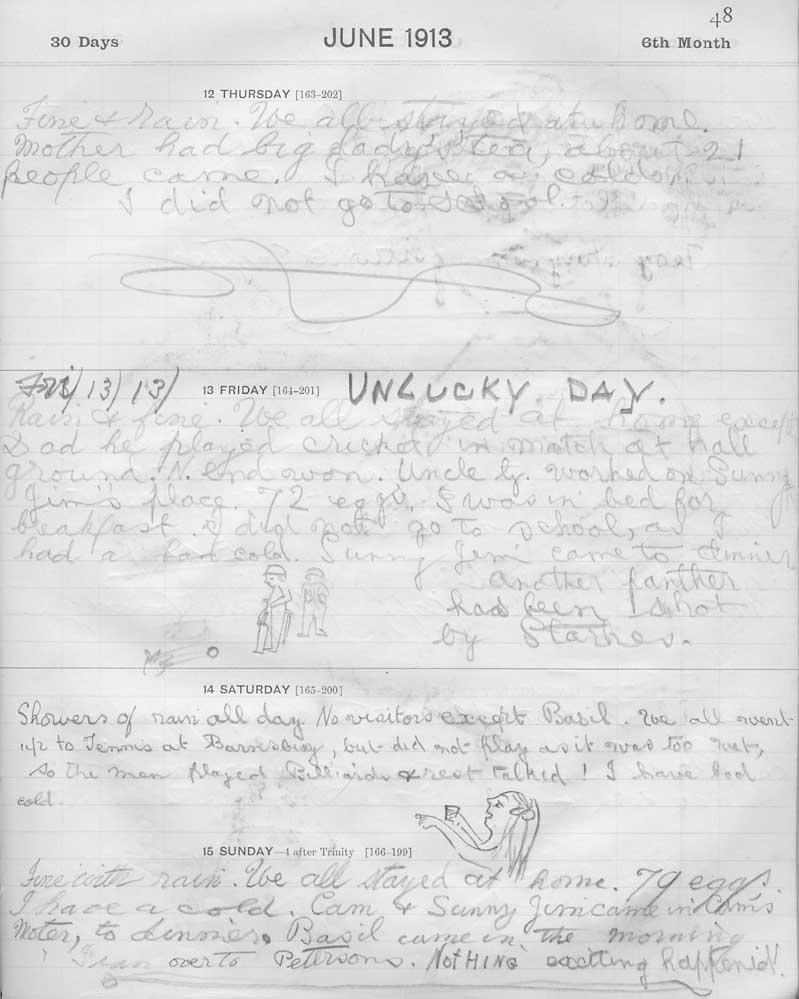 48
30 Days JUNE 1913 6th Month
12 THURSDAY [163-202]
Fine & rain. We all stayed at home.
Mother had big lady's tea, about 21
people came. I have a cold.
I did not go to School.
Fri/13/13/ 13 FRIDAY [164-201] UNLUCKY DAY.
Rain & fine. We all stayed at home except
Dad he played cricket in match at hall
ground. N. end won. Uncle G. worked on Sunny
Jim's place. 72 eggs. I was in bed for
beakfast. I did not go to school, as I
had a bad cold. Sunny Jim came to dinner
another panther
had been shot
by Starkes.
14 SATURDAY [165-200]
Showers of rain all day. No visitors except Basil. We all went
up to Tennis at Barnsbury, but did not play as it was too wet,
so the men played Billiards & rest talked! I have bad
cold.
15 SUNDAY—4 after Trinity [166-199]
Fine with rain. We all stayed at home. 79 eggs.
I have a cold. Cam & Sunny Jim came in Cam's
Moter, to dinner. Basil came in the morning
I ran over to Petersons. NOTHING exciting happenid!